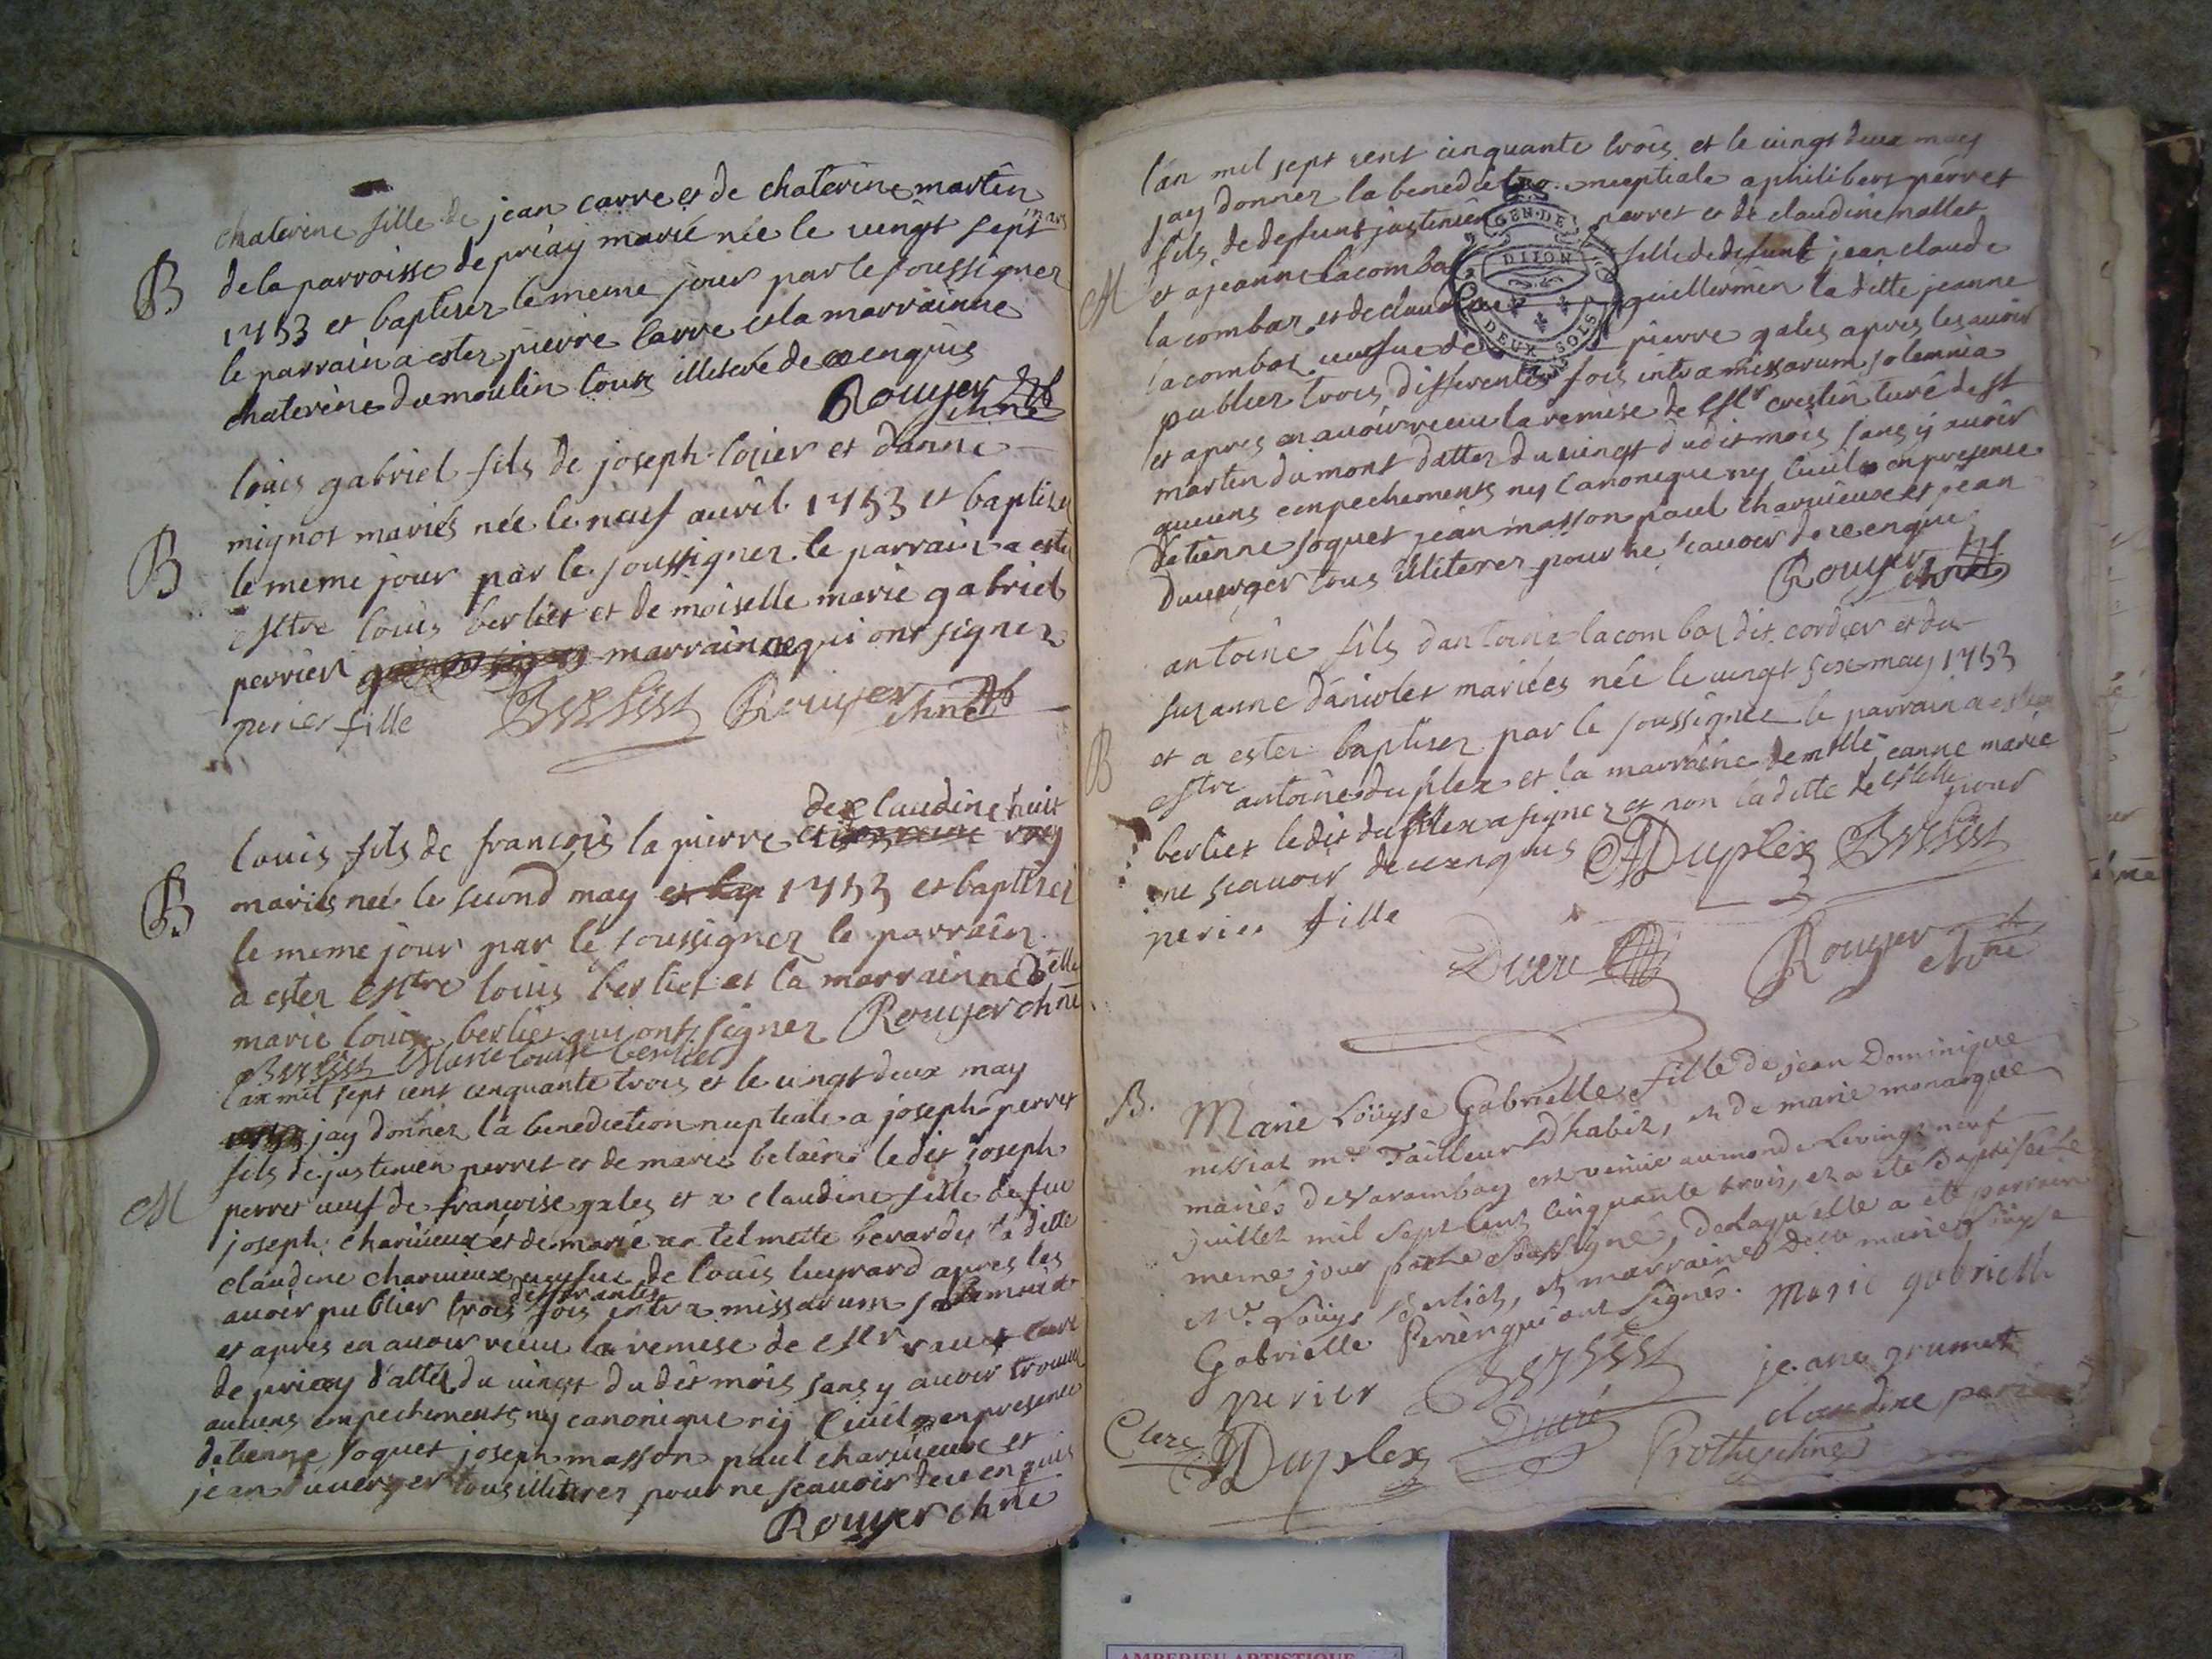 chaterine fille de jean carre et de chaterine martin
B de la parroisse de priay marié née le vingt sept mars
1753 et baptisez le meme jour par le soussignez
le parrain a estez pierre carre et la marrainne
chaterine dumoulin tous illeteré de ce enquis
Rouyer
chne
louis gabriel fils de joseph lojier et danne
mignot mariés née le neuf auvril 1753 et baptisez
B le meme jour par le soussignez le parrain a estez
Mtre louis berliet et de moiselle marie gabriel
perrier marrainne qui ont signez
perier fille Berliet Rouyer chne
de claudine huit
louis fils de françois la pierre
B mariés née le second may 1753 et baptisez
le meme jour par le soussignez le parrain
a estez Mtre louis berliet et la marrainne dlle
marie louise berliet qui ont signez Rouyer chne
Berliet Marie louise berliet
lan mil sept cent cinquante trois et le vingt deux may
jay donnez la benediction nuptiale a joseph perret
fils de justinien perret et de marie belain ledit joseph
M perret veuf de françoise gales et a claudine fille de feu
joseph charuieux et de marie berardy la ditte
claudine charuieux veufue de louis luyrard apres les
differantes
auoir publier trois fois intra missarum solemnia
et apres en auoir receu la remise de Msr curé
de priay datté du vingt dudit mois sans y auoir trouué
aucuns empechements ny canonique ny ciuil en presence
detienne soquet joseph masson paul charuieux et
jean duuerger tous illiterez pour ne scauoir de ce enquis
Rouyer chne
lan mil sept cent cinquante trois et le vingt deux may
jay donnez la benediction nuptiale a philibert perret
fils de defunt justinien perret et de claudine mallet
M et a jeanne lacombaz fille de defunt jean claude
lacombaz et de claudine guillermin la ditte jeanne
lacombaz veufue de pierre gales apres les auoir
publier trois differentes fois intra missarum solemnia
et apres en auoir receu la remise de Msr crestin curé de st
martin du mont dattez du vingt dudit mois sans y auoir
aucuns empechements ny canonique ny ciuil en presence
detienne soquet jean masson paul charuieux et jean
duuerger tous illiterez pour ne scauoir de ce enquis
Rouyer
chne
antoine fils dantoine lacombaz dit cordier et de
suzanne daniolet mariées née le vingt six may 1753
B et a ester baptisez par le soussignee le parrain a estez
Mtre antoine duplex et la marraine demlle anne marie
berliet ledit duplex a signez et non la ditte delle pour
ne scauoir de ce enquis Duplex Berliet
perier fille
Ducré Rouyer
chne
B. Marie Loüyse Gabrielle fille de jean Dominique
nessiat mr. Tailleur Dhabit, et de marie monarque
mariés de varambay est venüe au monde le vingt neuf
juillet mil sept cent cinquante trois, et a été Baptisée le
meme jour par le soussigné, de laquelle a été parrain
Mr. Loüys Berliet, et marraine delle marie Loüyse
Gabrielle Perier qui ont signés. Marie gabrielle
perier Berliet jeane grumet
Clerc Duplex Ducré claudine perier
Prothy chne
GEN. DE DIJON
DEUX SOLS
AMBERIEU ARTISTIQUE